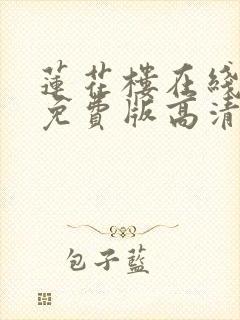 蓮花樓在綫
免費版高清
包子藍